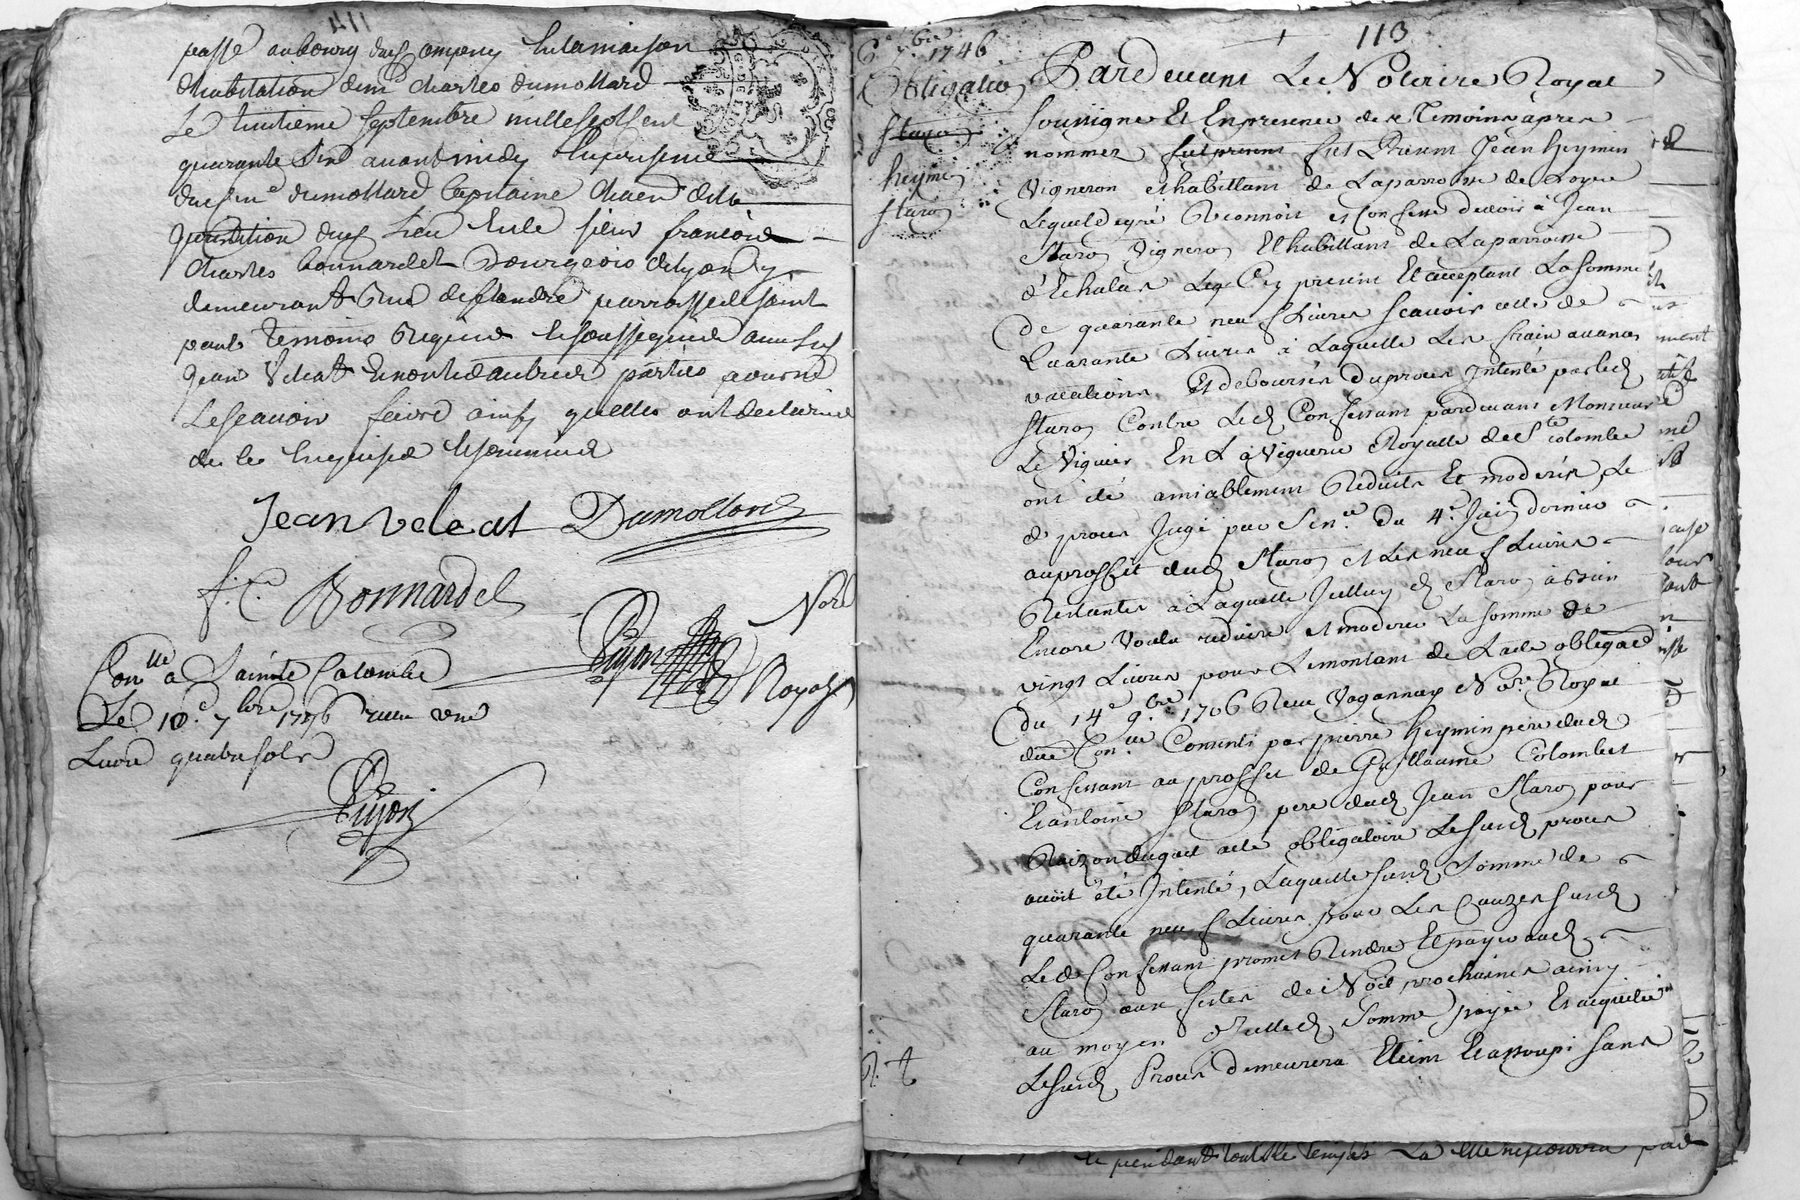 114
passé au bourg dud ampuis en la maison
d'habitation dem charles dumollard
Le huitieme septembre mille sept cent
quarante six avant midy En presence
dud sieur dumollard Capitaine
Juridition dud Lieu Et de sieur francois
charles bonnardel Bourgeois de Lyon y
demeurant Rue de flandre parroisse de saint
paul temoins Requis Et soussignés avec Led
Jean Veleat Et non Les autres parties pour ne
Le scavoir faire ainsy quelles ont declaré
de ce Enquises Et sommées
Jean veleat Dumollard
f. C. Bonnardel
Pujon Nore Royal
Conlle a Sainte Colombe
Le 10e 7bre 1746 reçu une
Livre quatre sols
Pujon
113
7bre 1746
Obligation
Staron
heymin
Staron
Pardevant Le Notaire Royal
soussigné Et En presence des Temoins apres
nommez fut present fut Present Jean heymin
vigneron et habittant de La parroisse de Loyre
Lequel de gré Reconnoit et Confesse devoir à Jean
Staron vigneron Et habittant de La parroisse
d'Echalas Icy present Et acceptant La somme
De quarante neuf Livres scavoir celle de
quarante Livres à Laquelle Les frais avances
vacations Et deboursés du proces Intenté par led
Staron Contre Led Confessant pardevant Monsieur
Le Viguier En La viguerie Royalle de Ste colombe
ont été amiablement Reduits Et moderés Le
d proces Jugé par Senee du 4e Juin dernier
au proffit dud Staron et Les neuf Livres
Restantes à Laquelle Icelluy d Staron à bien
Encore Voulu reduire et moderer La somme de
vingt Livres pour Le montant de L'acte obligatoire
du 14e 9bre 1706 Receu Vaganay Nore Royal
due Conue Consenti par pierre heymin pere dud
Confessant au proffit de Guillaume Colombet
Et antoine Staron pere dud Jean Staron pour
Raizon duquel acte obligatoire Le susd proces
avoit été Intenté, Laquelle susd somme de
quarante neuf Livres pour Les Cauzes susd
Led Confessant promet Rendre Et payer aud
Staron aux festes de Noël prochaines ainsy
au moyen d'Icelled Somme payée Et acquittée
Le susd Proces demeurera Eteint Et assoupi sans
pendant tout le temps La